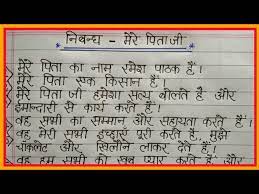 निबन्ध - मेरे पिताजी
मेरे पिता का नाम रमेश पाठक है ।
मेरे पिता एक किसान हैं ,
मेरे पिता जी हमेशा सत्य बोलते हैं और
ईमानदारी से कार्य करते हैं ।
वह सभी का सम्मान और सहायता करते हैं
वह मेरी सभी इच्छाएं पूरी करते हैं, मुझे
चॉकलेट और खिलौने लाकर देते हैं ।
वह हम सभी को खूब प्यार करते हैं और